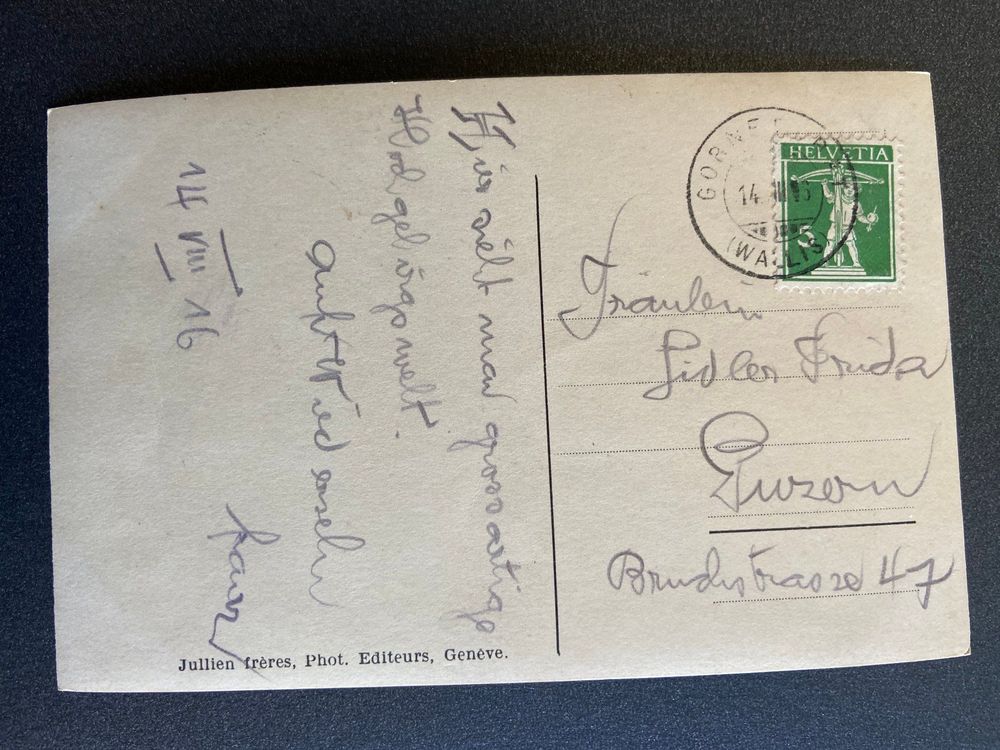 Hier sieht man grossartige
Hochgebirgswelt.
auf Wiedersehn
14 VIII 16
HELVETIA
5
GORNERGRAT
14. VIII 16
(WALLIS)
Fräulein
Sidler Frida
Luzern
Bruchstrasse 47
Jullien frères, Phot. Editeurs, Genève.